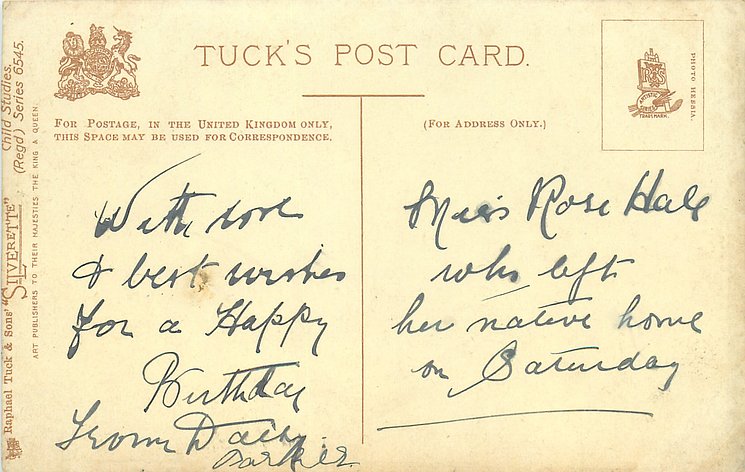 TUCK'S POST CARD.
FOR POSTAGE, IN THE UNITED KINGDOM ONLY,
THIS SPACE MAY BE USED FOR CORRESPONDENCE.
(FOR ADDRESS ONLY.)
PHOTO HESSIA.
ARTISTIC
SERIES
TRADE MARK.
With love
& best wishes
for a Happy
Birthday
From
Parker
Miss Rose Hale
who left
her native home
on Saturday
Raphael Tuck & Sons' "SILVERETTE" Child Studies.
(Regd) Series 6545.
ART PUBLISHERS TO THEIR MAJESTIES THE KING & QUEEN